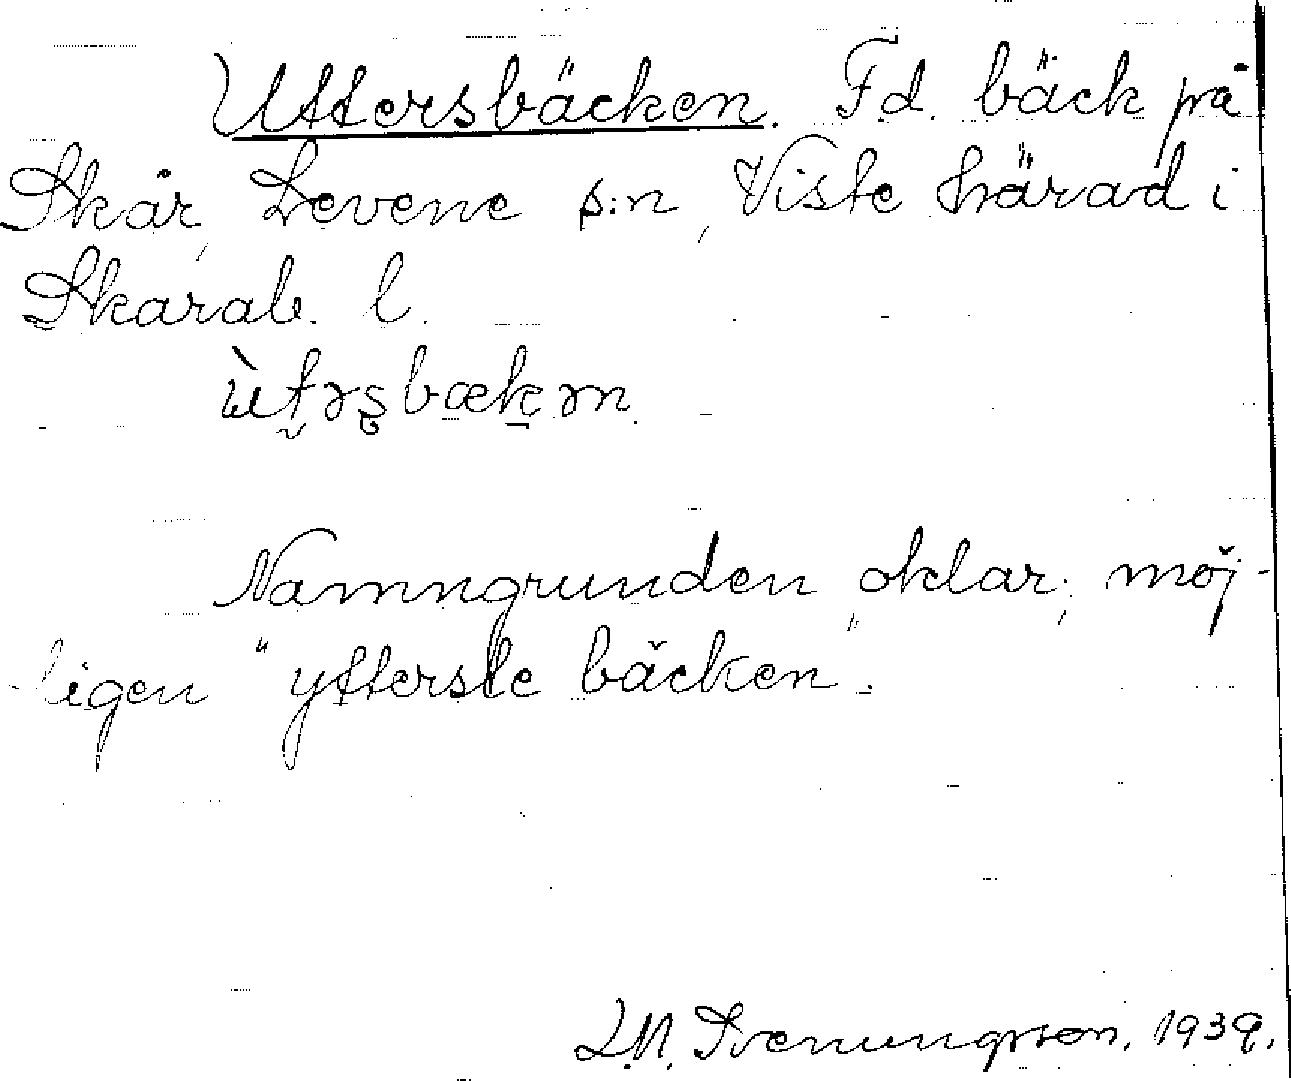 Uttersbäcken. F.d. bäck på
Skår, Levene s:n, Viste härad i
Skarab. l.
ùt̰ərs̨bækən.
Namngrunden oklar; möj-
ligen "ytterste bäcken".
L.N. Svenungsson. 1939.